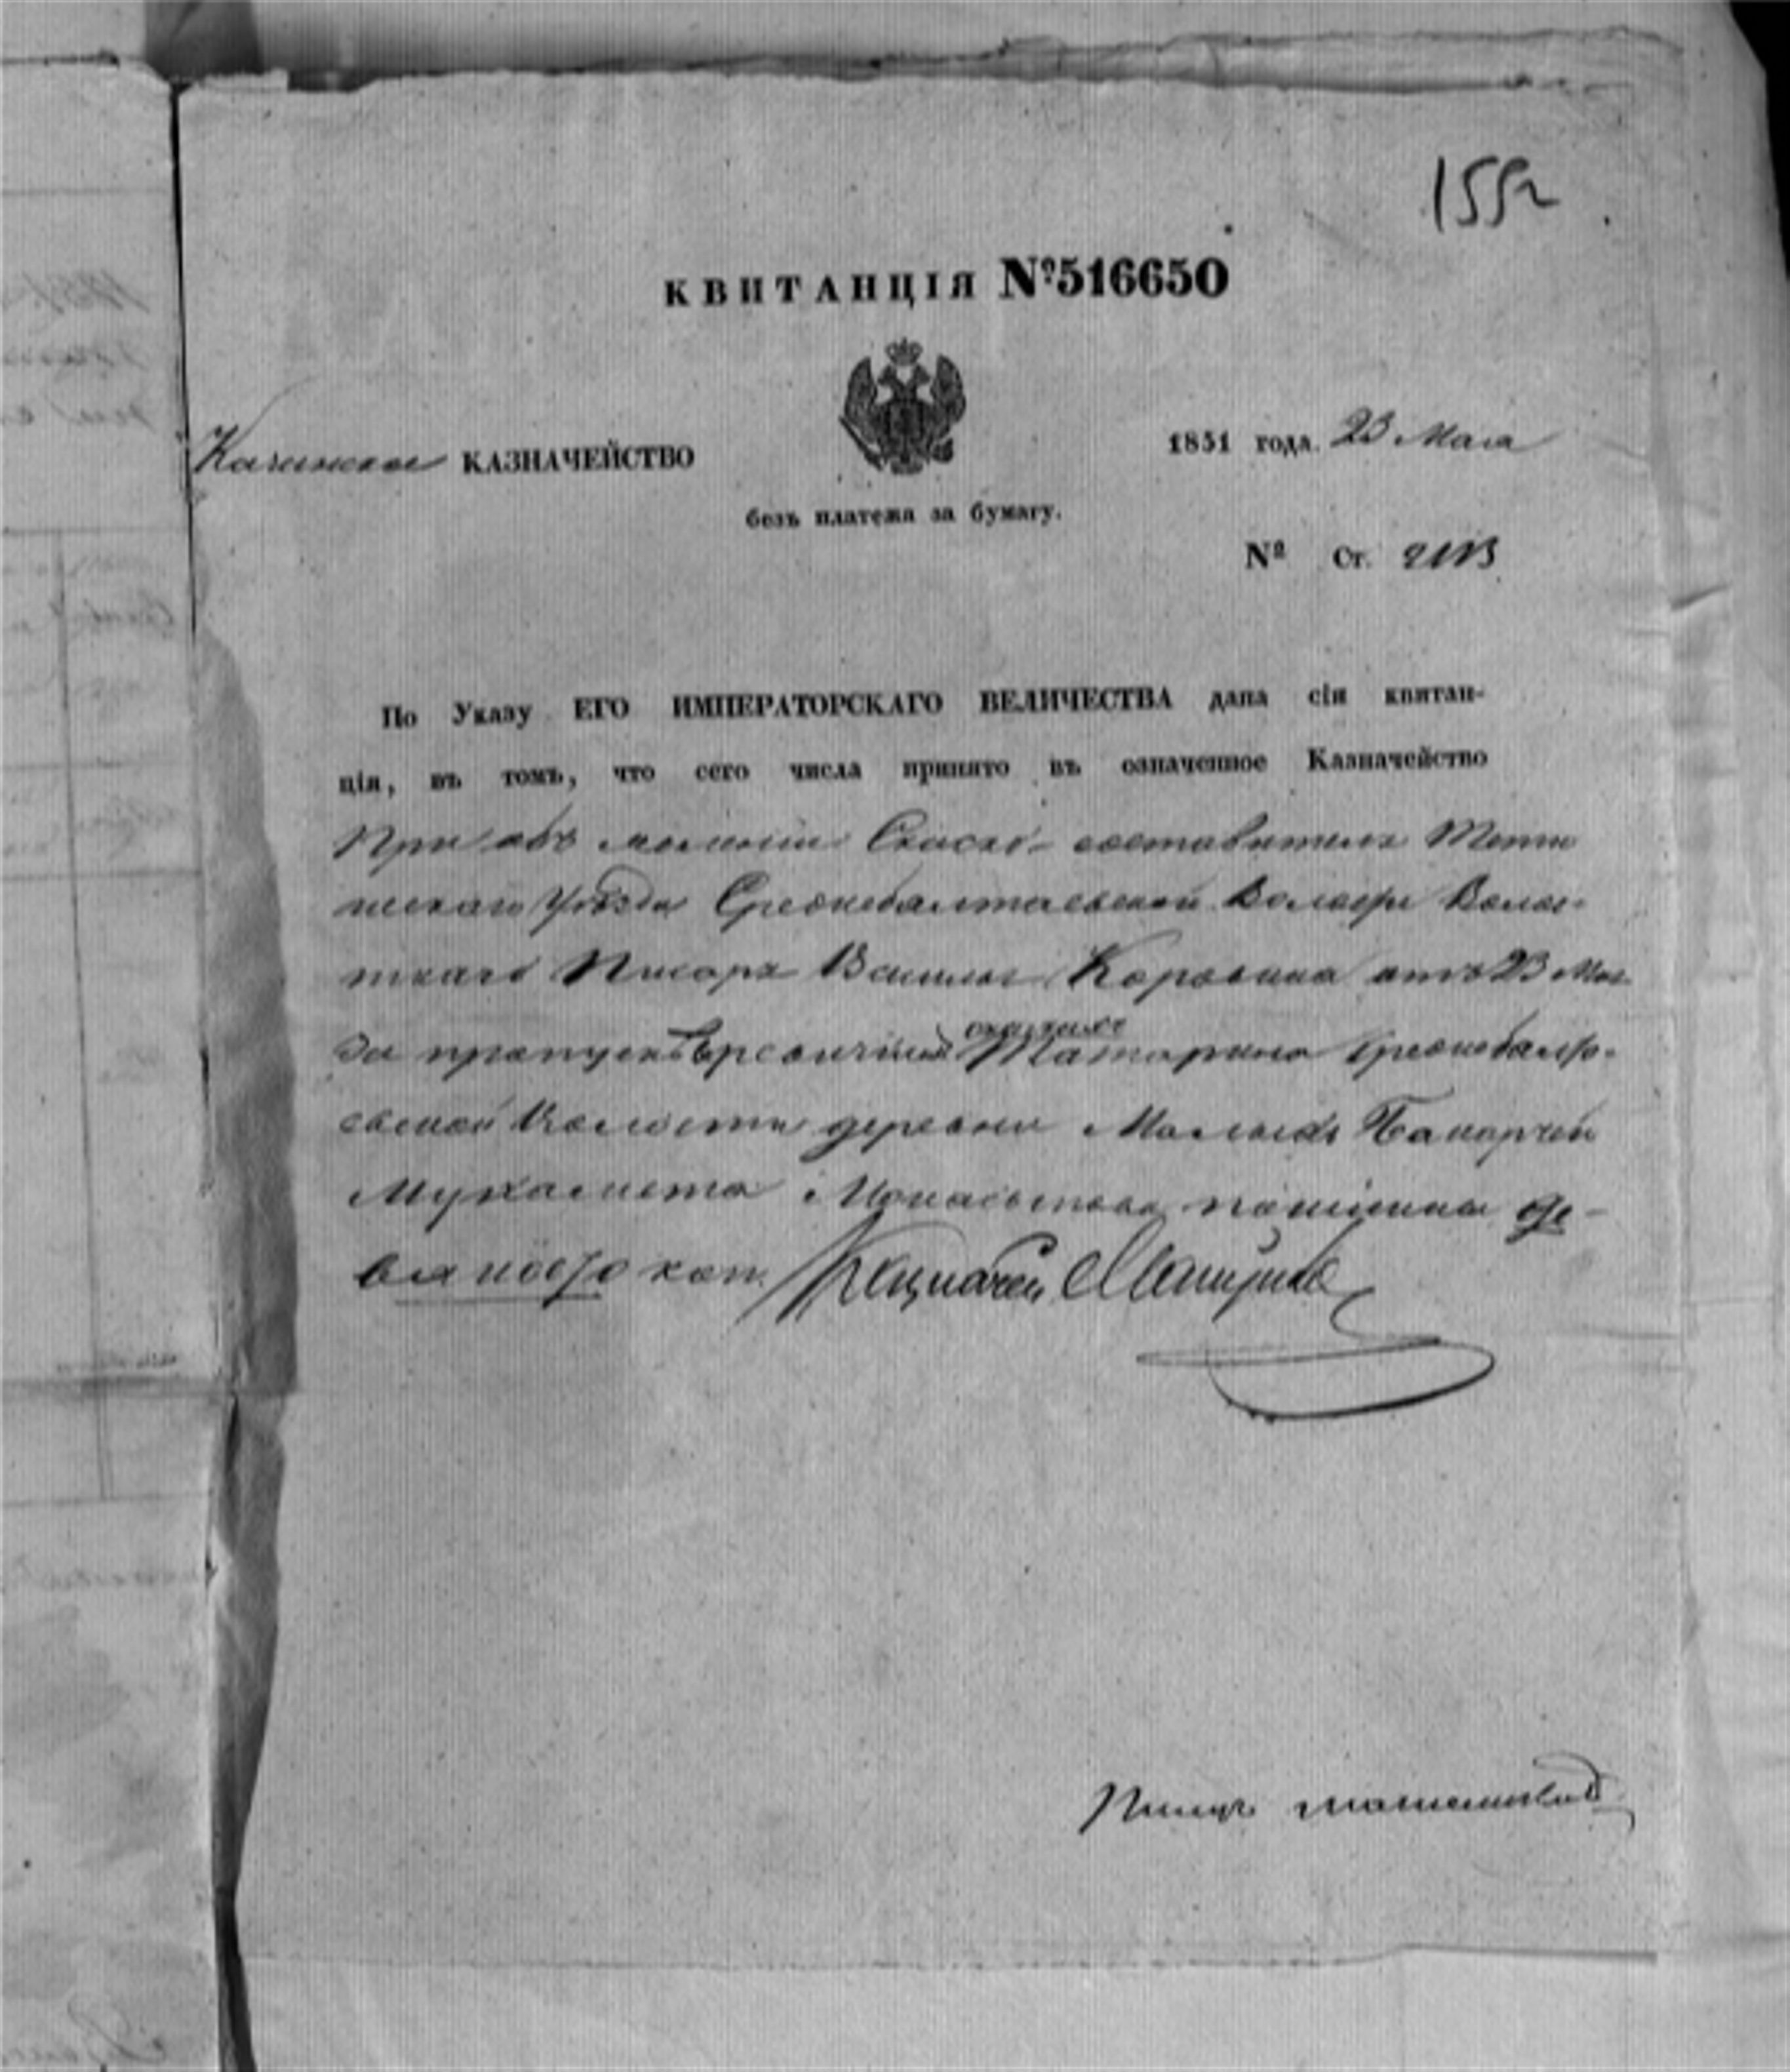 155
КВИТАНЦІЯ №516650
КАЗНАЧЕЙСТВО
1851 года. 23 Мая
безъ платежа за бумагу.
№ Ст.
По Указу ЕГО ИМПЕРАТОРСКАГО ВЕЛИЧЕСТВА дана сія квитан-
ція, въ томъ, что сего числа принято въ означенное Казначейство
При объявленіи Сказко-составителя
Уѣзда Среднебалтаевской Волости Волос-
тнаго Писаря Василья Коровина отъ 23 Мая
за пропускъ въ ревичной сказкахъ Татарина Среднебалт-
евской Волости деревни Малыхъ
Мухамета пошлины де-
вяносто коп. Казначей